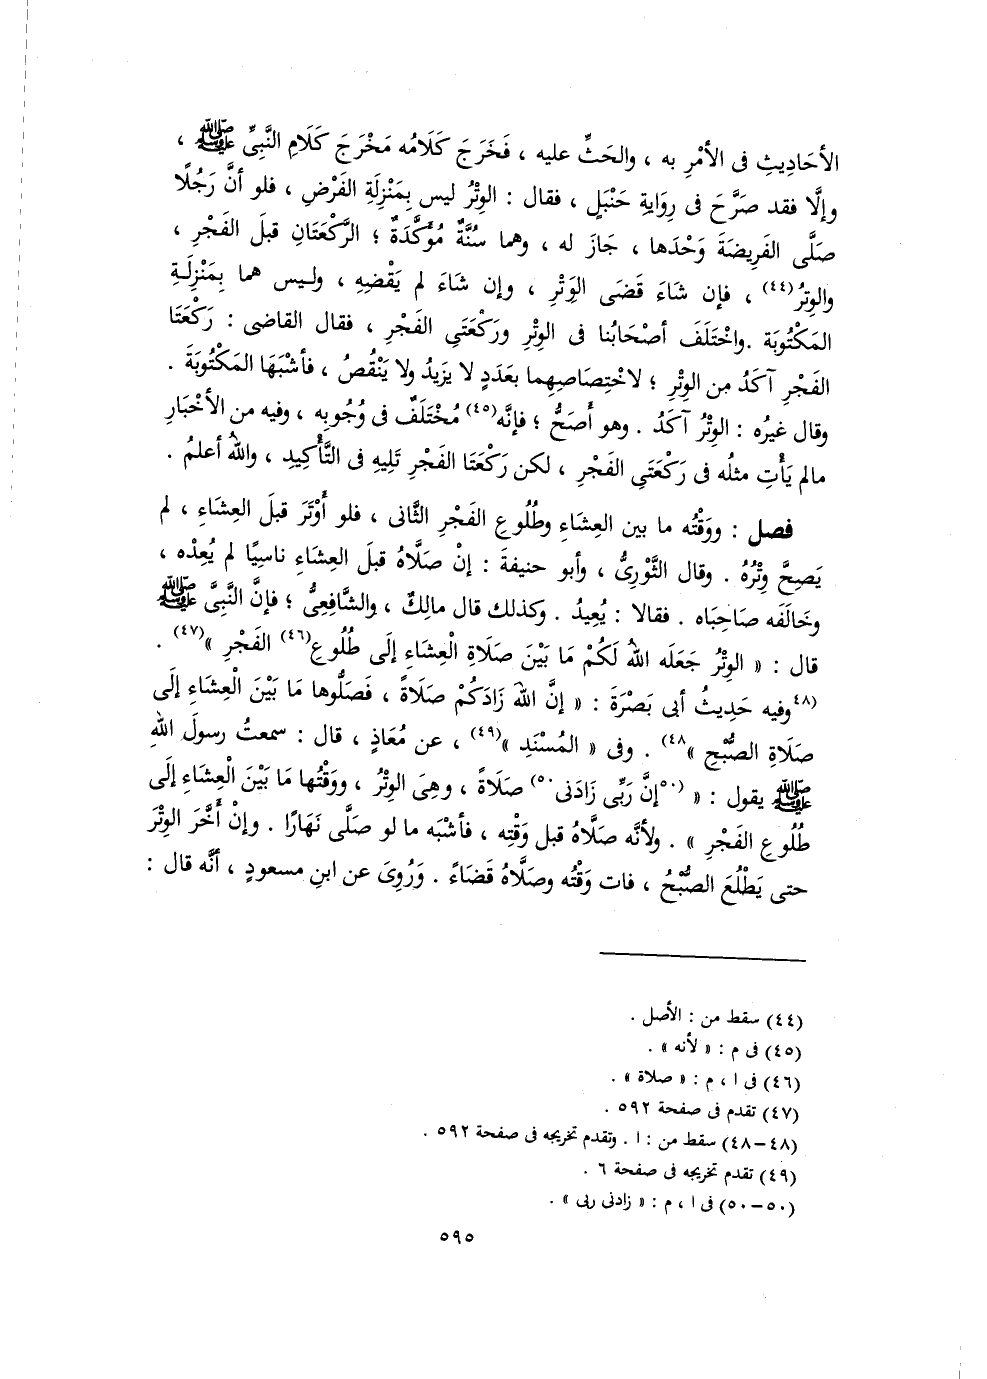 الأحَادِيثِ فى الأمْرِ به ، والحَثِّ عليه ، فَخَرَجَ كَلَامُه مَخْرَجَ كَلَامِ النَّبِىِّ ﷺ ،
وإلَّا فقد صَرَّحَ فى رِوَايةِ حَنْبَلٍ ، فقال : الوِتْرُ ليس بِمَنْزِلَةِ الفَرْضِ ، فلو أنَّ رَجُلًا
صَلَّى الفَرِيضَةَ وَحْدَها ، جَازَ له ، وهما سُنَّةٌ مُؤَكَّدَةٌ ؛ الرَّكْعَتَانِ قبلَ الفَجْرِ ،
والوِترُ(٤٤) ، فإن شَاءَ قَضَى الوِتْرِ ، وإن شَاءَ لم يَقْضِهِ ، وليس هما بِمَنْزِلَةِ
المَكْتُوبَة .واخْتَلَفَ أصْحَابُنا فى الوِتْرِ ورَكْعَتَىِ الفَجْرِ ، فقال القاضى : رَكْعَتَا
الفَجْرِ آكَدُ مِن الوِتْرِ ؛ لاخْتِصَاصِهِما بعَدَدٍ لا يَزِيدُ ولا يَنْقُصُ ، فأشْبَهَا المَكْتُوبَةَ .
وقال غيرُه : الوِتْرُ آكَدُ . وهو أَصَحُّ ؛ فإنَّه(٤٥) مُخْتَلَفٌ فى وُجُوبِه ، وفيه من الأخْبَارِ
مالم يَأْتِ مثلُه فى رَكْعَتَىِ الفَجْرِ ، لكن رَكْعَتَا الفَجْرِ تَلِيهِ فى التَّأْكِيدِ ، واللهُ أعلمُ .
فصل : ووَقْتُه ما بين العِشَاءِ وطُلُوعِ الفَجْرِ الثَّانى ، فلو أَوْتَرَ قبلَ العِشَاءِ ، لم
يَصِحَّ وِتْرُهُ . وقال الثَّوْرِىُّ ، وأبو حنيفةَ : إنْ صَلَّاهُ قبلَ العِشَاءِ ناسِيًا لم يُعِدْه ،
وخَالَفَه صَاحِبَاه . فقالا : يُعِيدُ . وكذلك قال مالِكٌ ، والشَّافِعِىُّ ؛ فإنَّ النَّبِىَّ ﷺ
قال : « الوِتْرُ جَعَلَه اللهُ لَكُمْ مَا بَيْنَ صَلَاةِ الْعِشَاءِ إلَى طُلُوعِ(٤٦) الفَجْرِ »(٤٧) .
(٤٨وفيه حَدِيثُ أبى بَصْرَةَ : « إنَّ اللهَ زَادَكُمْ صَلَاةً ، فَصَلُّوها مَا بَيْنَ الْعِشَاءِ إلَى
صَلَاةِ الصُّبْحِ »٤٨) . وفى « المُسْنَدِ »(٤٩) ، عن مُعَاذٍ ، قال : سمعتُ رسولَ اللهِ
ﷺ يقول : « (٥٠إنَّ رَبِّى زَادَنى٥٠) صَلَاةً ، وهِىَ الوِتْرُ ، ووَقْتُها مَا بَيْنَ الْعِشَاءِ إلَى
طُلُوعِ الفَجْرِ » . ولأنَّه صَلَّاهُ قبل وَقْتِه ، فأشْبَه ما لو صَلَّى نَهَارًا . وإنْ أَخَّرَ الوِتْرَ
حتى يَطْلُعَ الصُّبْحُ ، فات وَقْتُه وصَلَّاهُ قَضَاءً . وَرُوِىَ عن ابنِ مسعودٍ ، أنَّه قال :
(٤٤) سقط من : الأصل .
(٤٥) فى م : « لأنه » .
(٤٦) فى ا ، م : « صلاة » .
(٤٧) تقدم فى صفحة ٥٩٢ .
(٤٨-٤٨) سقط من : ا . وتقدم تخريجه فى صفحة ٥٩٢ .
(٤٩) تقدم تخريجه فى صفحة ٦ .
(٥٠-٥٠) فى ا ، م : « زادنى ربى » .
٥٩٥